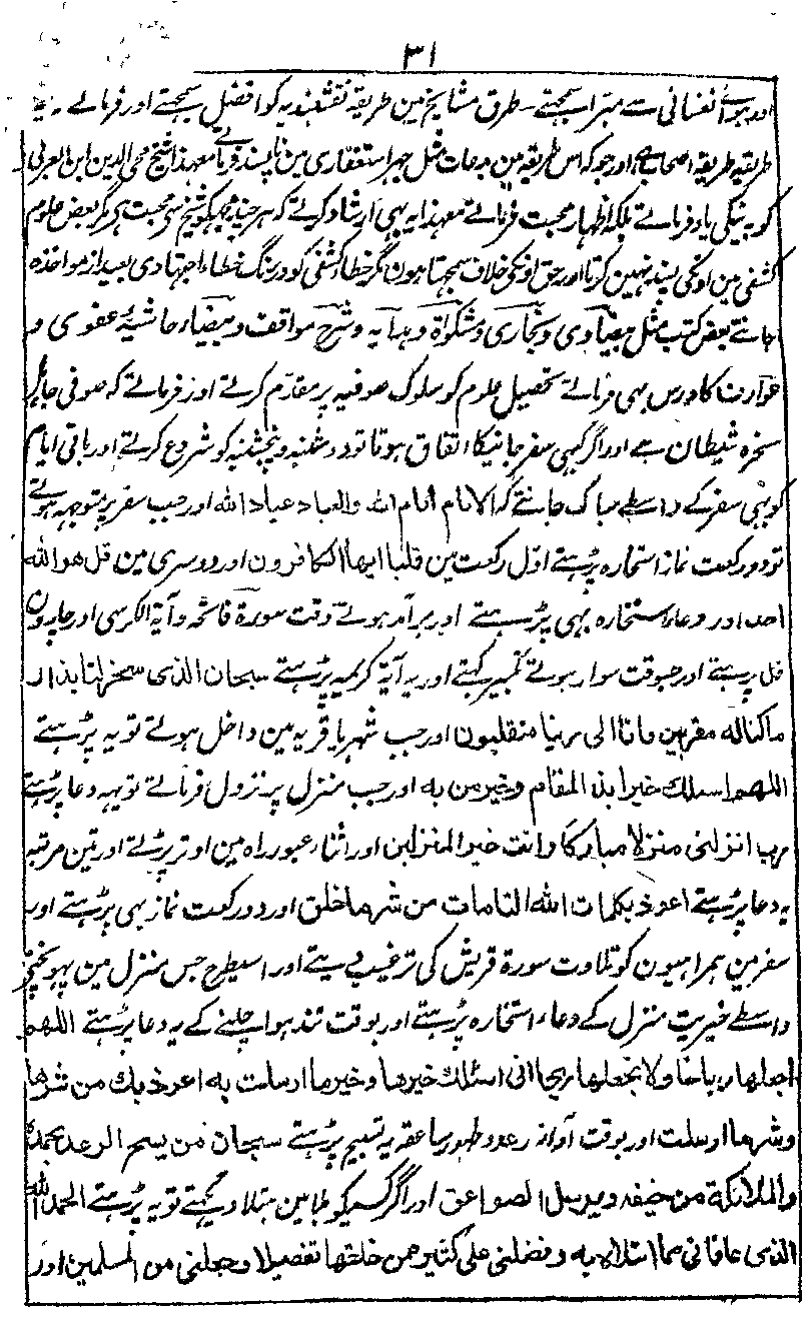 ۳۱
اور ہوائے نفسانی سے مبرا سمجھتے۔ طرق مشایخ مین طریقہ نقشبندیہ کو افضل سمجھتے اور فرماتے۔ یہ
طریقہ طریقہ اصحاب ہے اور جو کہ اس طریقہ مین بدعات مثل جہر استغفاری مین ناپسند فرماتے معہذا شیخ محی الدین ابن العربی
کو بہ نیکی یاد فرماتے بلکہ اظہار محبت فرماتے معہذا یہ بہی ارشاد کرتے کہ ہر چند مجہکو شیخ سی محبت ہی مگر بعض علوم
کشفی مین اونکی پسند نہین کرتا اور حق اونکی خلاف سمجہتا ہون مگر خطا کشفی کو در رنگ خطاء اجتہادی بعید از مواخذہ
جانتے بعض کتب مثل بیضاوی و بخاری و مشکواۃ و ہدایہ و شرح مواقف و بیضاء حاشیۂ عضدی و
عوارف کا درس بہی فرماتے تحصیل علوم کو سلوک صوفیہ پر مقدم کرتے اور فرماتے کہ صوفی جاہل
سخرہ شیطان ہے اور اگر کہی سفر جانیکا اتفاق ہوتا تو دوشنبہ و پنجشنبہ کو شروع کرتے اور باقی ایام
کو بہی سفر کے واسطے مبارک جانتے کہ الایام ایام اللہ والعباد عباد اللہ اور جب سفر پر متوجہہ ہوتے
تو دو رکعت نماز استخارہ پڑہتے اول رکعت مین قل یا ایہا الکافرون اور دوسری مین قل هو اللہ
احد اور دعاء استخارہ بہی پڑہتے اور برآمد ہوتے وقت سورۃ فاتحہ و آیۃ الکرسی اور چارون
قل پڑہتے اور جسوقت سوار ہوتے تکبیر کہتے اور یہ آیۃ کریمہ پڑہتے سبحان الذی سخر لنا ہذا و
ما کنا له مقرنین وانا الی ربنا منقلبون اور جب شہر یا قریہ مین داخل ہوتے تو یہ پڑہتے
اللهم اسئلك خیر ہذا المقام وخیر من به اور جب منزل پر نزول فرماتے تو یہہ دعا پڑہتے
رب انزلنی منزلا مبارکا وانت خیر المنزلین اور اثناء عبور راہ مین اوتر پڑتے اور تین مرتبہ
یہ دعا پڑہتے اعوذ بکلمات الله التامات من شر ما خلق اور دو رکعت نماز بہی پڑہتے اور
سفر مین ہمراہیون کو تلاوت سورۃ قریش کی ترغیب دیتے اور اسیطرح جس منزل مین پہونچتے
واسطے خیریت منزل کے دعاء استخارہ پڑہتے اور بوقت تند ہوا چلنے کے یہ دعا پڑہتے اللهم
اجعلها ریاحا ولا تجعلها ریحا انی اسئلك خیرها وخیر ما ارسلت به اعوذ بك من شرها
وشر ما ارسلت اور بوقت آواز رعد و ظہور صاعقہ یہ تسبیح پڑہتے سبحان من یسبح الرعد بحمدہ
والملائکة من خیفته ویرسل الصواعق اور اگر کسیکو بلا مین مبتلا دیکہتے تو یہ پڑہتے الحمد لله
الذی عافانی مما ابتلاه به وفضلنی علی کثیر ممن خلقها تفضیلا وجعلنی من المسلمین اور